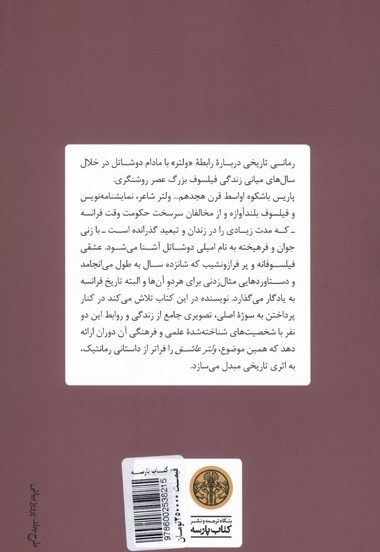 رمانی تاریخی دربارهٔ رابطهٔ «ولتر» با مادام دوشاتل در خلال
سال‌های میانی زندگی فیلسوف بزرگ عصر روشنگری.
پاریس باشکوه اواسط قرن هجدهم... ولتر شاعر، نمایشنامه‌نویس
و فیلسوف بلندآوازه و از مخالفان سرسخت حکومت وقت فرانسه
ـ که مدت زیادی را در زندان و تبعید گذرانده است ـ با زنی
جوان و فرهیخته به نام امیلی دوشاتل آشنا می‌شود. عشقی
فیلسوفانه و پر فرازونشیب که شانزده سال به طول می‌انجامد
و دستاوردهایی مثال‌زدنی برای هردوِ آن‌ها و البته تاریخ فرانسه
به یادگار می‌گذارد. نویسنده در این کتاب تلاش می‌کند در کنار
پرداختن به سوژهٔ اصلی، تصویری جامع از زندگی و روابط این دو
نفر با شخصیت‌های شناخته‌شدهٔ علمی و فرهنگی آن دوران ارائه
دهد که همین موضوع، ولتر عاشق را فراتر از داستانی رمانتیک،
به اثری تاریخی مبدل می‌سازد.
کتاب پارسه
9786002538215
قیمت ۲۵۰۰۰۰ تومان
بنگاه ترجمه و نشر
کتاب پارسه
طرح جلد: پرویز بیانی